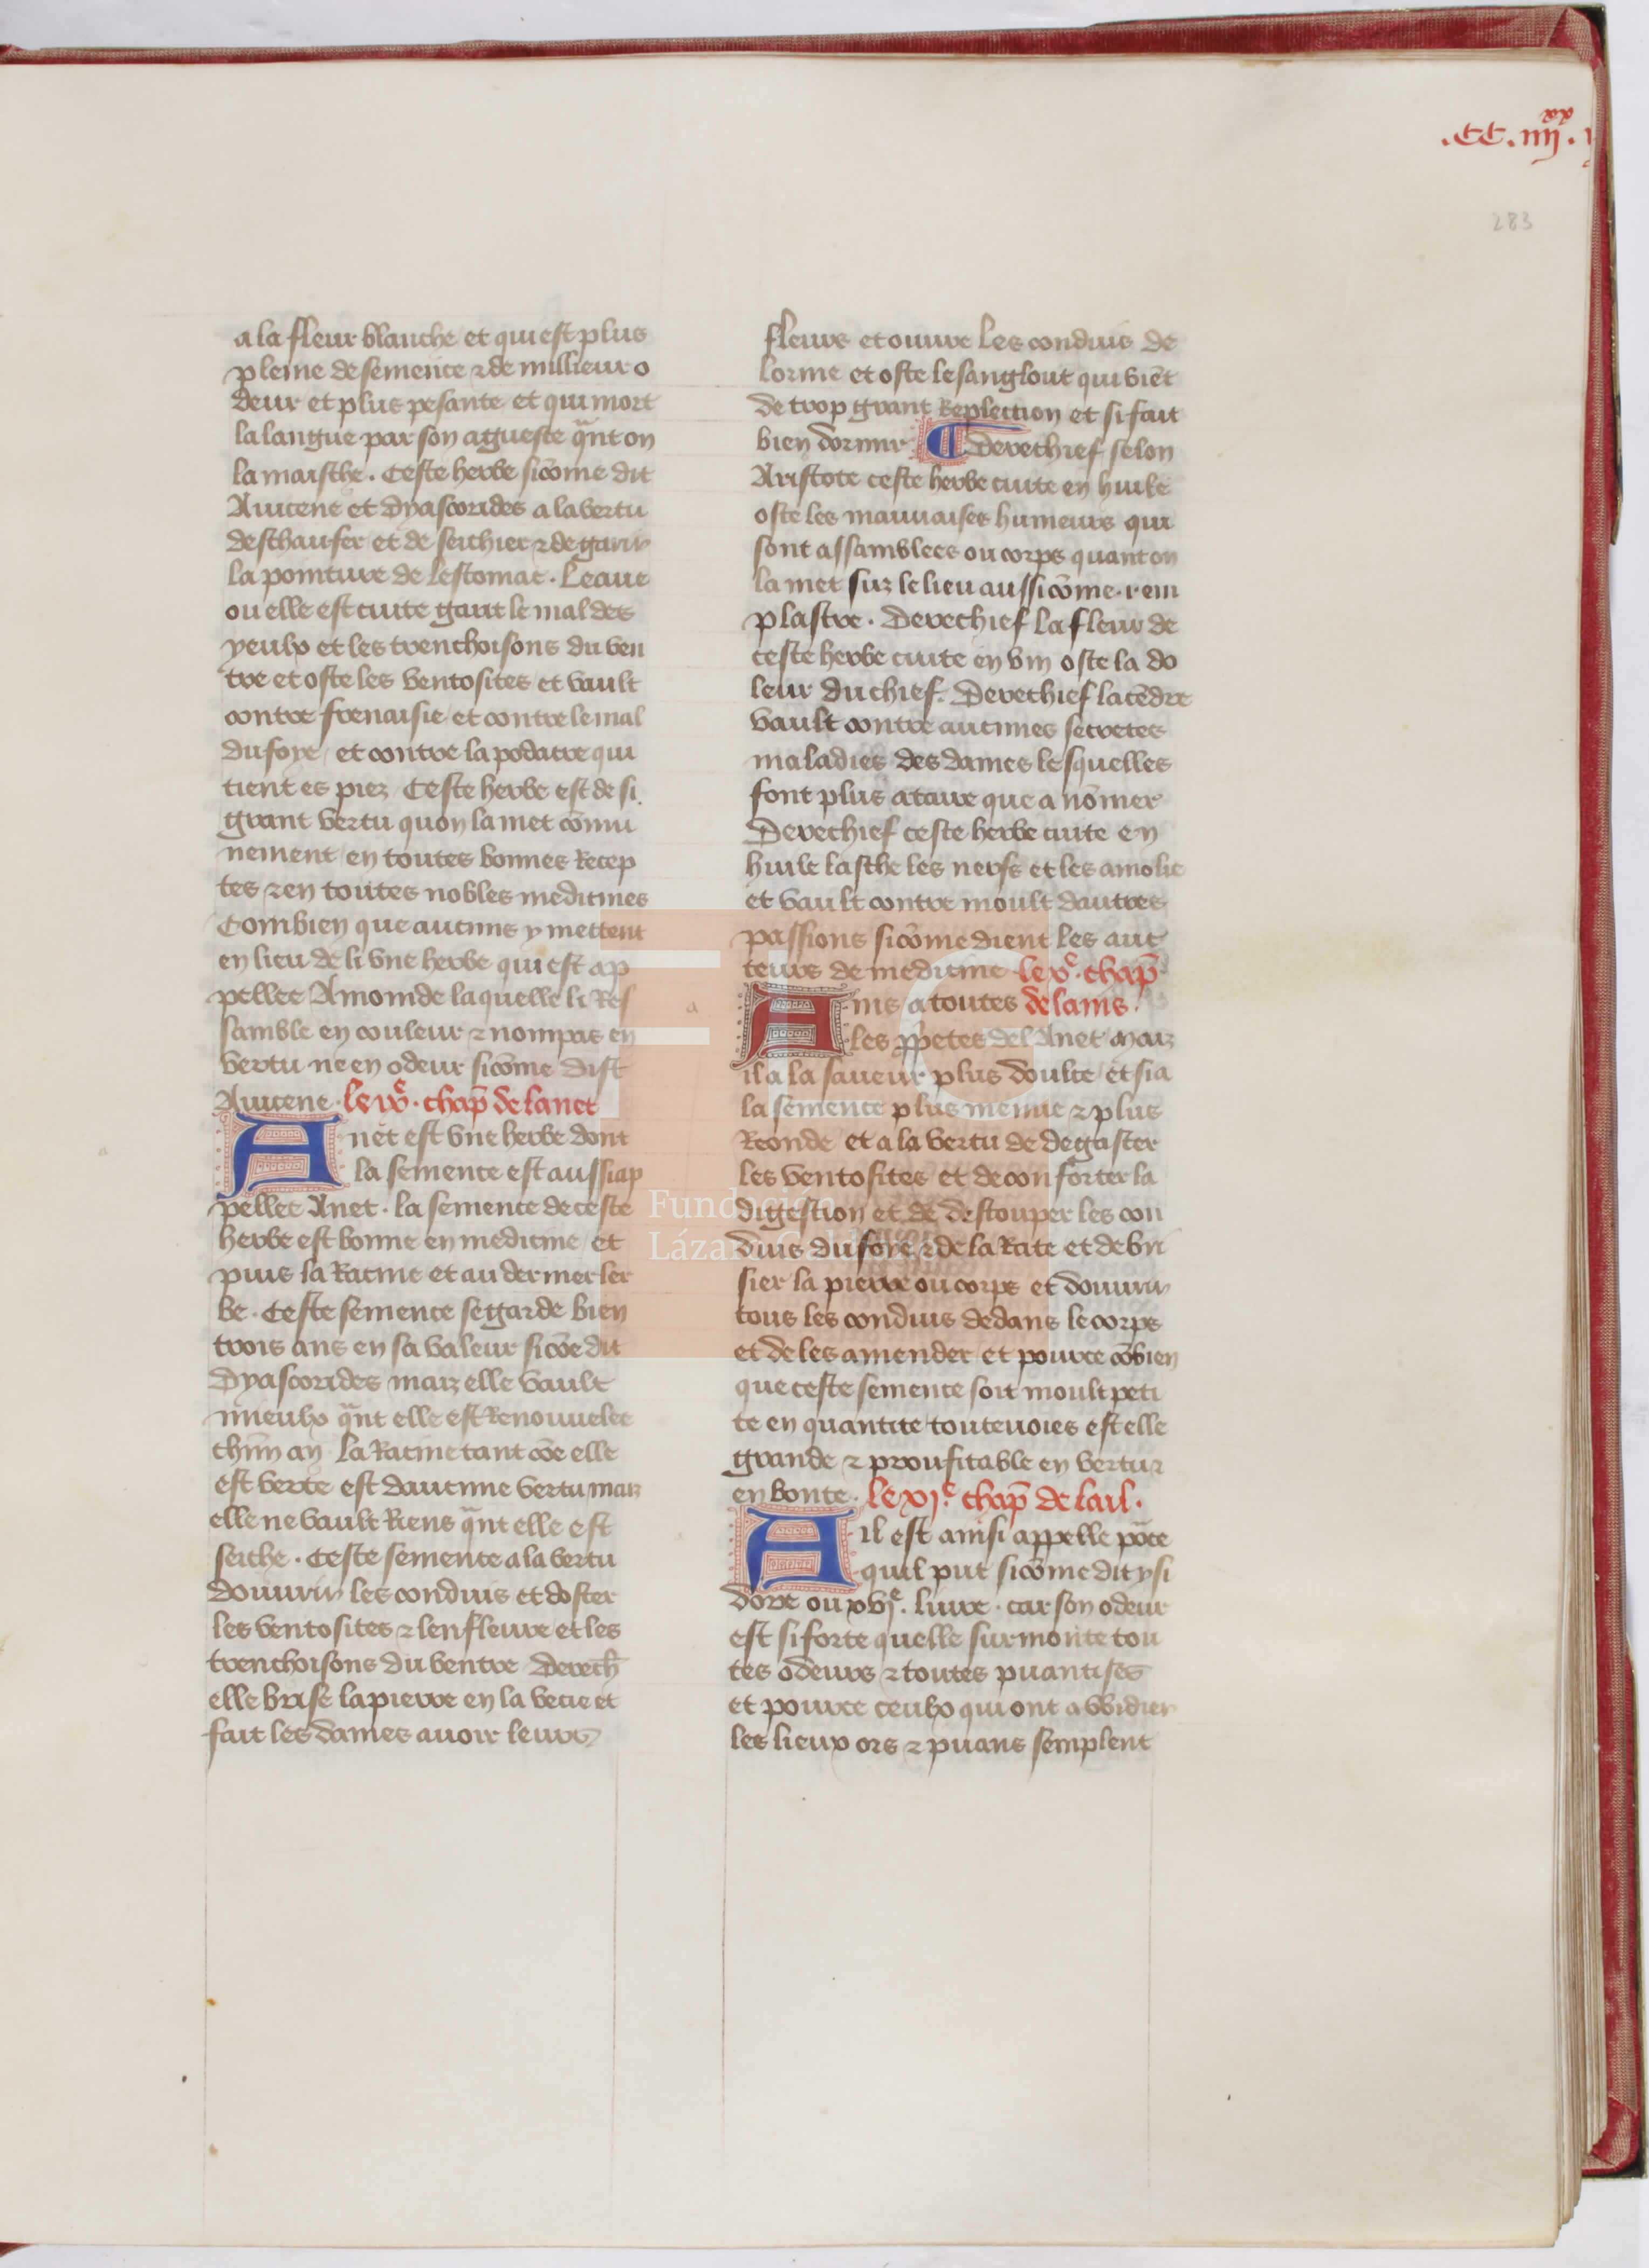 .CC.iiij.xx
283
a la fleur blanche et qui est plus
pleine de semence ⁊ de millieur o
deur et plus pesante et qui mort
la langue par son agueste q̃nt on
la maische. Ceste herbe sicõme dit
Auicene et Dyascorides a la vertu
deschaufer et de seichier ⁊ de garir
la pointure de lestomac. Leaue
ou elle est cuite garit le mal des
yeulx et les trenchoisons du ven
tre et oste les ventosites et vault
contre frenaisie et contre le mal
du foye et contre la podacre qui
tient es piez Ceste herbe est de si
grant vertu quon la met cõmu
nement en toutes bonnes Recep
tes ⁊ en toutes nobles medicines
Combien que aucuns y mettent
en lieu de li vne herbe qui est ap
pellee Amomde laquelle li Res
samble en couleur ⁊ nompas en
vertu ne en odeur sicõme dist
Auicene. le ixe. chap̃ de lanet
Anet est vne herbe dont
la semence est aussi ap
pellee Anet. la semence de ceste
herbe est bonne en medicine et
puis la Racine et au dernier ler
be. Ceste semence se garde bien
trois ans en sa valeur sicõe dit
Dyascorides maiz elle vault
mieulx q̃nt elle est Renouuelee
chũn an La Racine tant cõe elle
est verte est daucune vertu maiz
elle ne vault Riens q̃nt elle est
seiche. Ceste semence a la vertu
douurir les conduis et doster
les ventosites ⁊ lenfleure et les
trenchoisons du ventre Derech̃
elle brise la pierre en la vecie et
fait les dames auoir leurs
fleurs et ouure les conduis de
lorine et oste le sanglout qui viẽt
de trop grant Replection et si fait
bien dormir ¶ Derechief selon
Aristote ceste herbe cuite en huile
oste les mauuaises humeurs qui
sont assamblees ou corps quant on
la met suz le lieu aussi cõme .i. em
plastre. Derechief la fleur de
ceste herbe cuite en vin oste la do
leur du chief. Derechief la cẽdre
vault contre aucunes secretes
maladies des dames lesquelles
font plus a taire que a nõmer
Derechief ceste herbe cuite en
huile lasche les nerfs et les amolie
et vault contre moult dautres
passions sicõme dient les auc
teurs de medicine le xe. chap̃
Anis a toutes de lanis.
les p̃pretes del Anet maiz
il a la saueur plus doulce et si a
la semence plus menue ⁊ plus
Reonde et a la vertu de degaster
les ventosites et de conforter la
digestion et de destouper les con
duis du foye ⁊ de la Rate et de bri
sier la pierre ou corps et douurir
tous les conduis dedans le corps
et de les amender et pource cõbien
que ceste semence soit moult peti
te en quantite touteuoies est elle
grande ⁊ proufitable en vertu ⁊
en bonte. le xje. chap̃ de lail.
Ail est ainsi appelle põce
quil put sicõme dit ysi
dore ou xvije. liure. car son odeur
est si forte quelle surmonte tou
tes odeurs ⁊ toutes puantises
et pource ceulx qui ont a widier
les lieux ors ⁊ puans semplent
Fundación
Lázaro